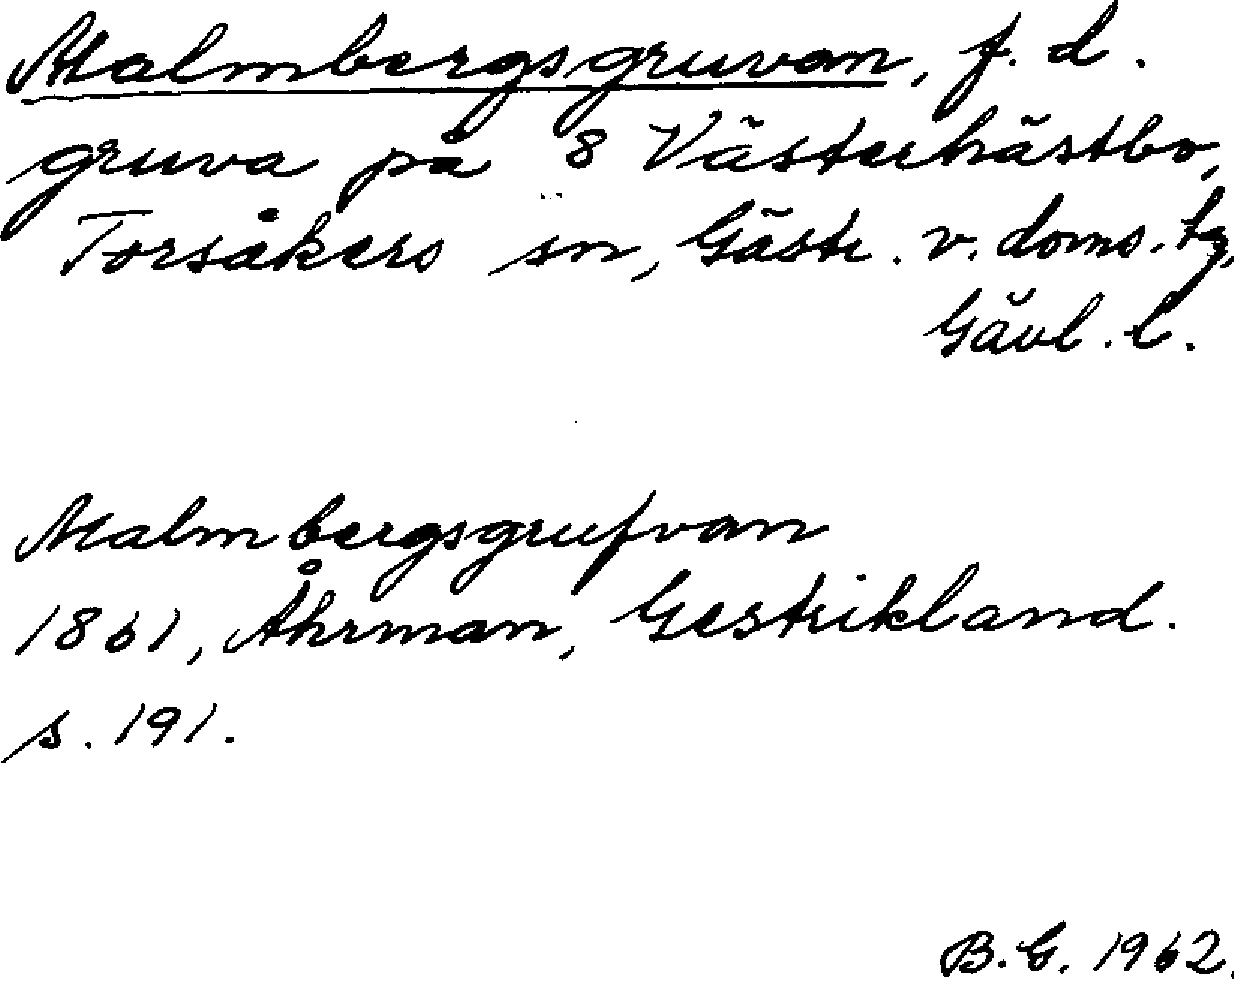 Malmbergsgruvan, f. d.
gruva på 8 Västerhästbo,
Torsåkers sn, Gästr. v. doms. tg,
Gävl. l.
Malmbergsgrufvan
1861, Åhrman, Gestrikland.
s. 191.
B. G. 1962.